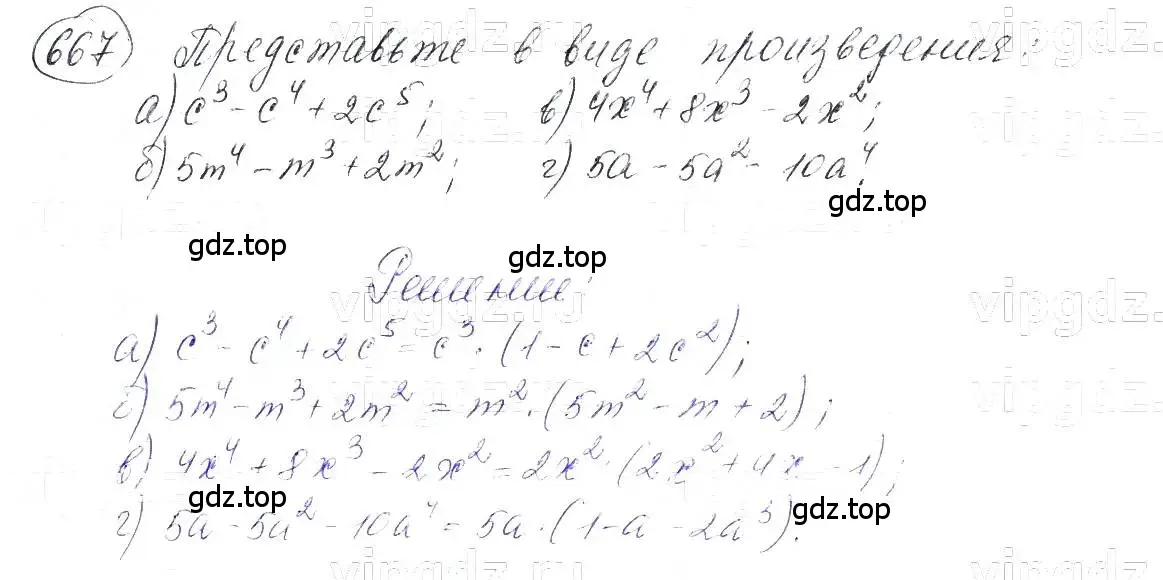 667 Представьте в виде произведения:
а) c³ - c⁴ + 2c⁵; в) 4x⁴ + 8x³ - 2x²;
б) 5m⁴ - m³ + 2m²; г) 5a - 5a² - 10a⁴.
gdz.top
gdz.top
gdz.top
Решение:
vipgdz.ru
vipgdz.
а) c³ - c⁴ + 2c⁵ = c³ · (1 - c + 2c²);
б) 5m⁴ - m³ + 2m² = m² · (5m² - m + 2);
в) 4x⁴ + 8x³ - 2x² = 2x² · (2x² + 4x - 1);
gdz.top
gdz.top
г) 5a - 5a² - 10a⁴ = 5a · (1 - a - 2a³).